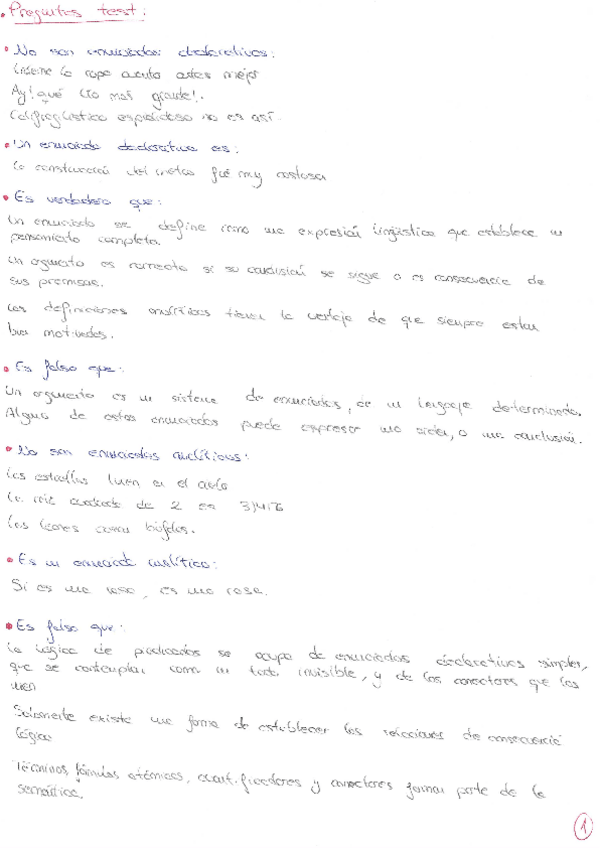 Preguntas test:
• No son enunciados declarativos:
la ropa cuanto antes mejor
Ay! qué más grande!.
espioidoso no es así.
• Un enunciado declarativo es:
la construcción del metro fué muy costosa
• Es verdadero que:
Un enunciado se define como una expresión lingüística que establece un
pensamiento completo.
Un argumento es correcto si su conclusión se sigue o es consecuencia de
sus premisas.
Las definiciones analíticas tienen la ventaja de que siempre están
bien motivadas.
• Es falso que:
Un argumento es un sistema de enunciados, de un lenguaje determinado.
Alguno de estos enunciados puede expresar una idea, o una conclusión.
• No son enunciados analíticos:
Las estrellas lucen en el cielo
La raíz cuadrada de 2 es
Los leones comen búfalos.
• Es un enunciado analítico:
Si es una rosa, es una rosa.
• Es falso que:
La lógica de predicados se ocupa de enunciados declarativos simples,
que se contemplan como un todo invisible, y de los conectores que los
unen
Solamente existe una forma de establecer las relaciones de consecuencia
lógica
Términos, fórmulas atómicas, cuantificadores y conectores forman parte de la
semántica.
1